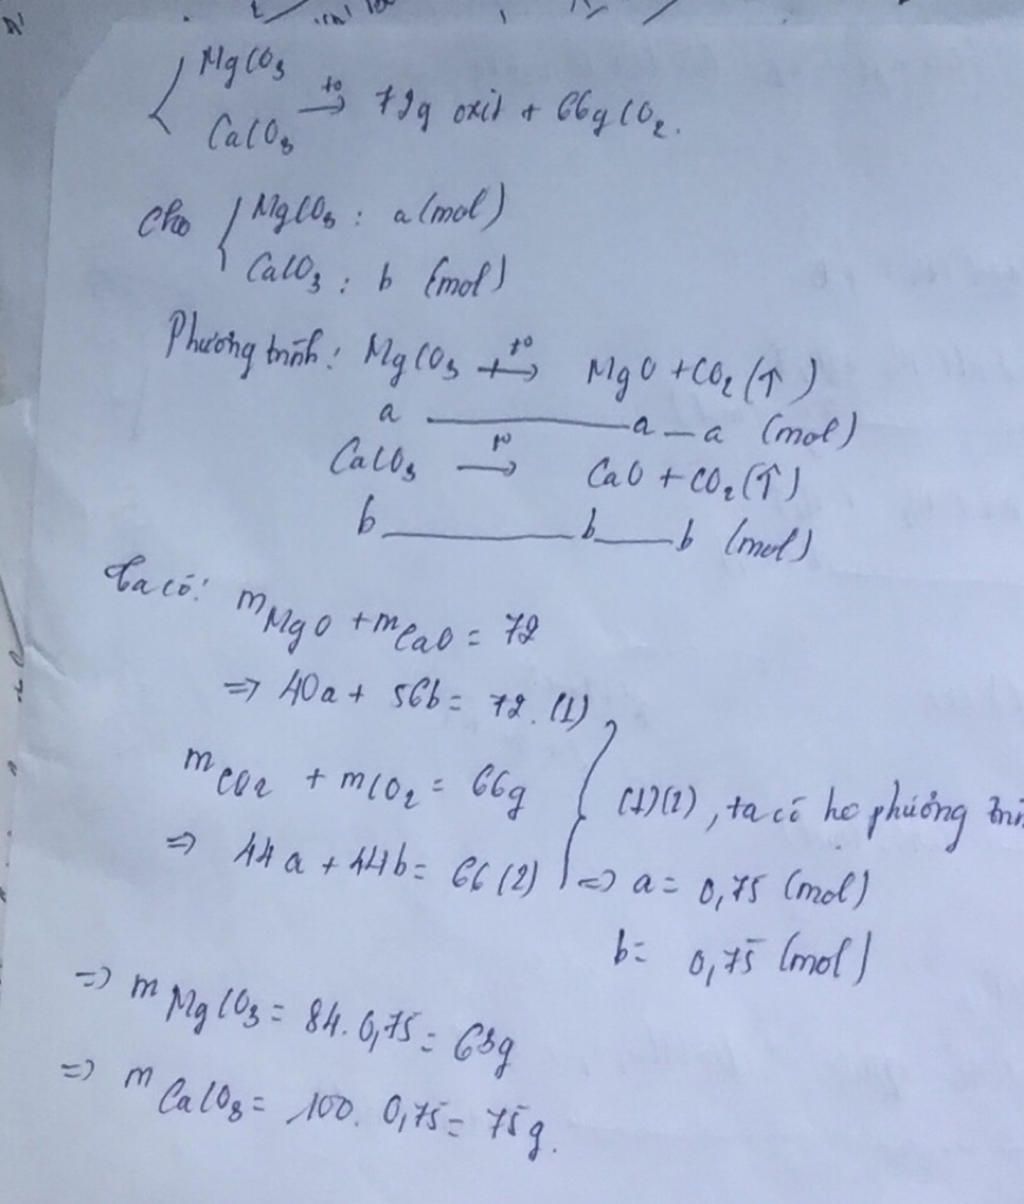 { MgCO₃
CaCO₃ →t⁰ 72g oxit + 66g CO₂.
Cho { MgCO₃ : a (mol)
CaCO₃ : b (mol)
Phương trình: MgCO₃ →t⁰ MgO + CO₂ (↑)
a ———— a — a (mol)
CaCO₃ →t⁰ CaO + CO₂ (↑)
b ———— b — b (mol)
Ta có: mMgO + mCaO = 72
=> 40a + 56b = 72. (1)
mCO₂ + mCO₂ = 66g
(1)(2), ta có hệ phương
=> 44a + 44b = 66 (2)
=> a = 0,75 (mol)
b = 0,75 (mol)
=> mMgCO₃ = 84. 0,75 = 63g
=> mCaCO₃ = 100. 0,75 = 75g.